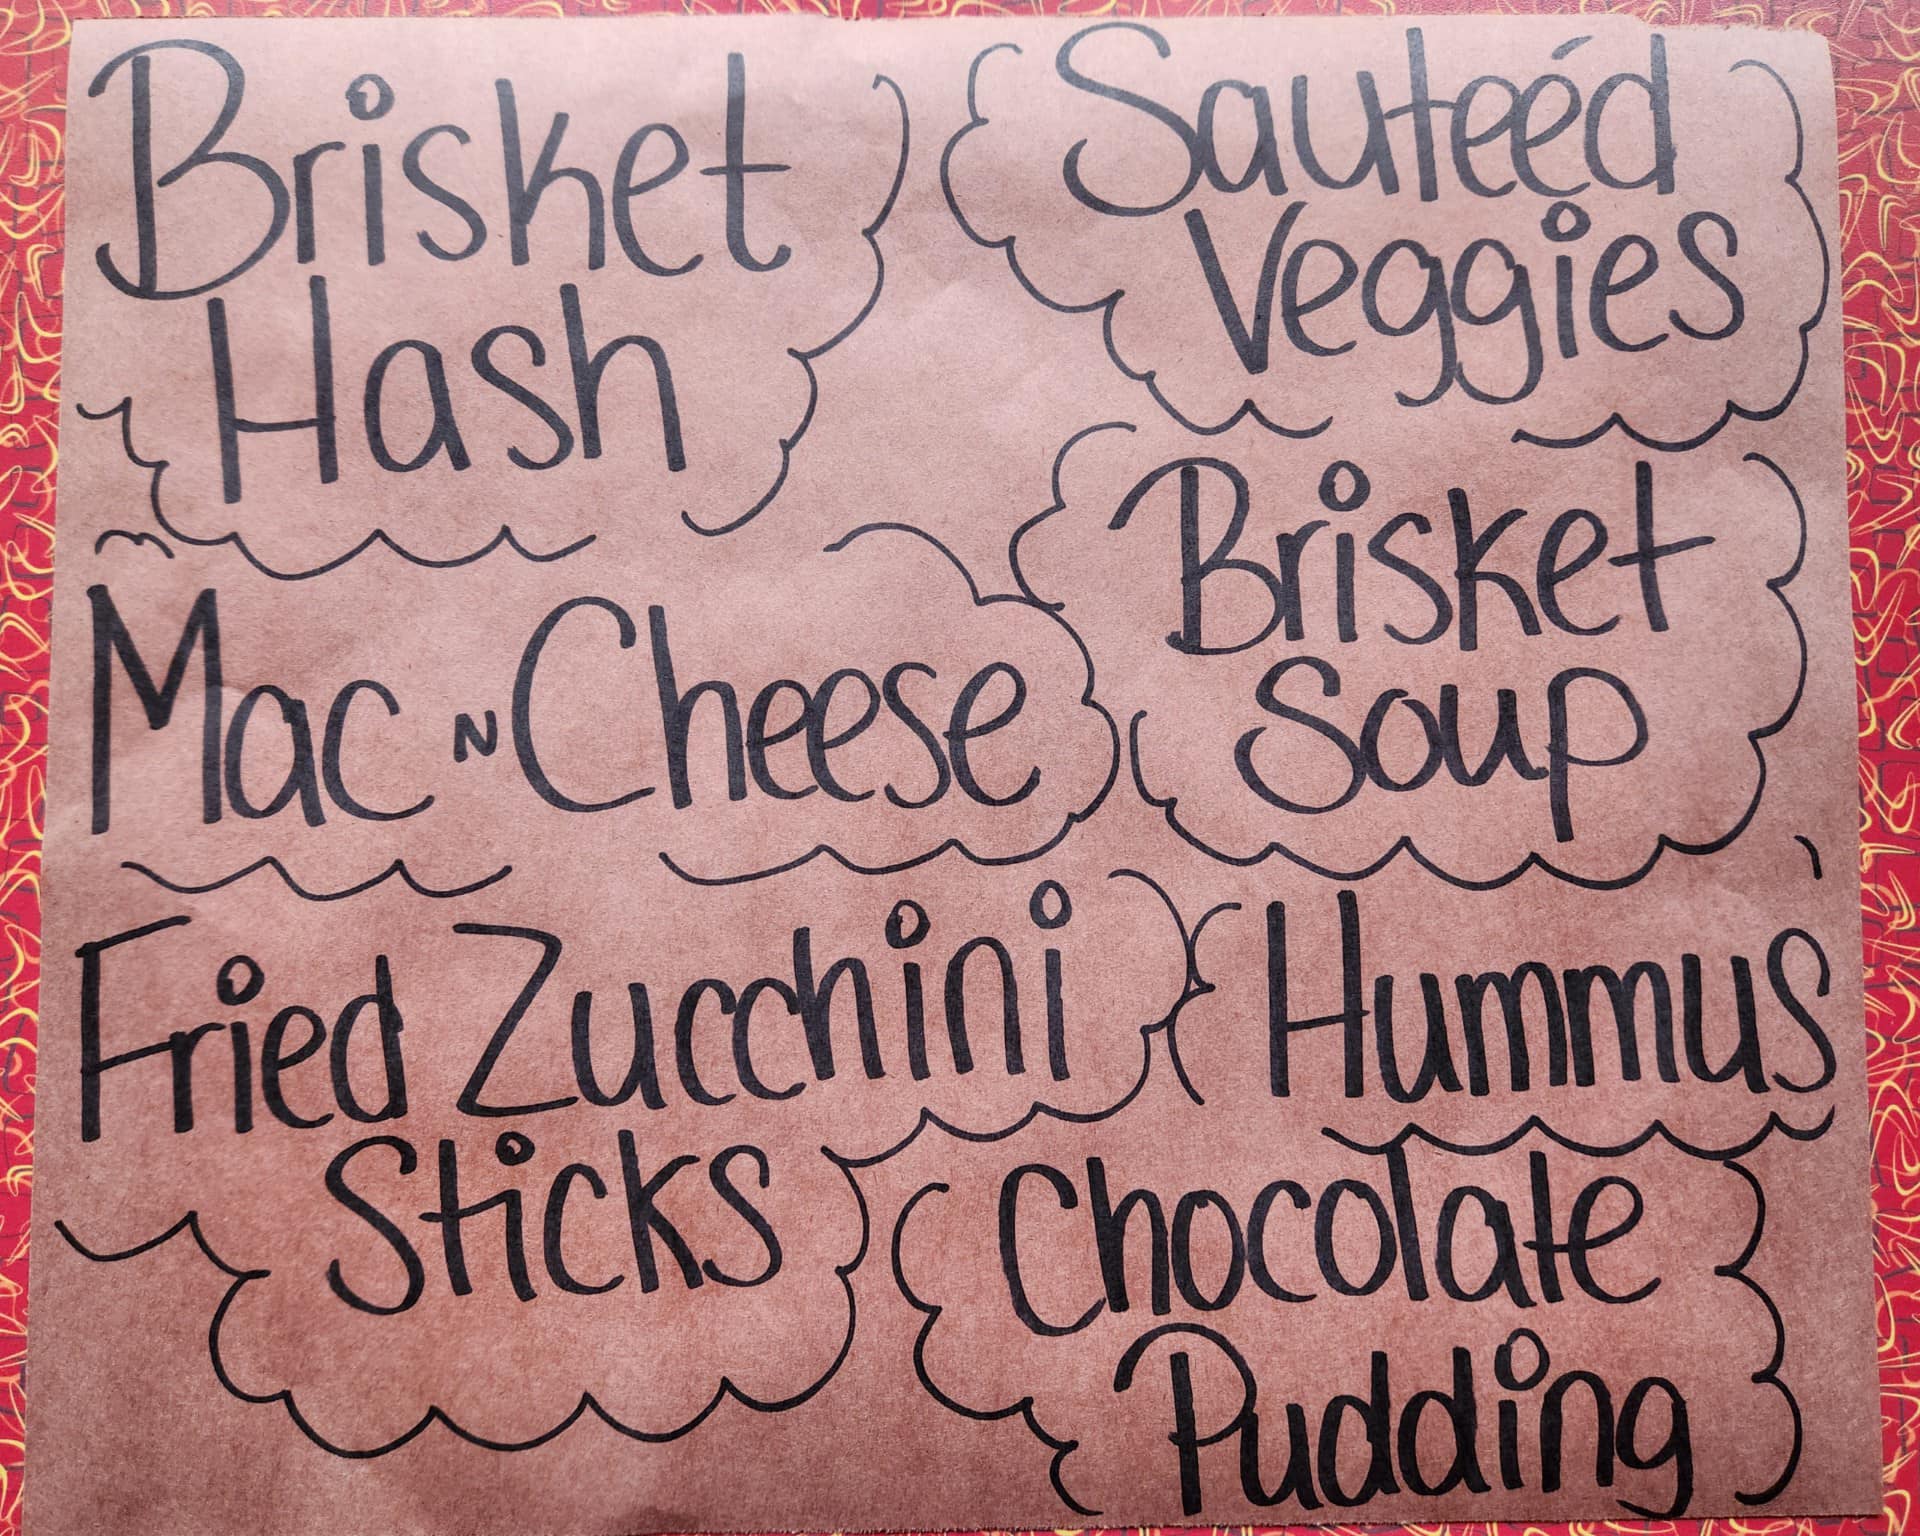 Brisket
Hash
Sauteéd
Veggies
Mac N Cheese
Brisket
Soup
Fried Zucchini
Sticks
Hummus
Chocolate
Pudding